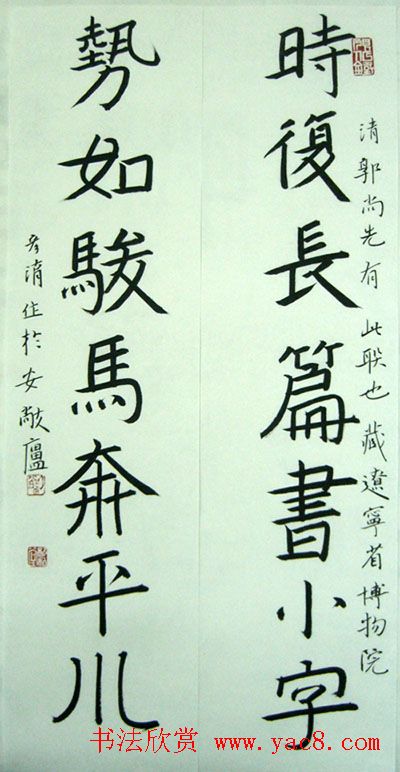 時復長篇書小字
清郭尚先有此联也藏遼寧省博物院
勢如駿馬奔平川
於安廬
书法欣赏 www.yac8.com